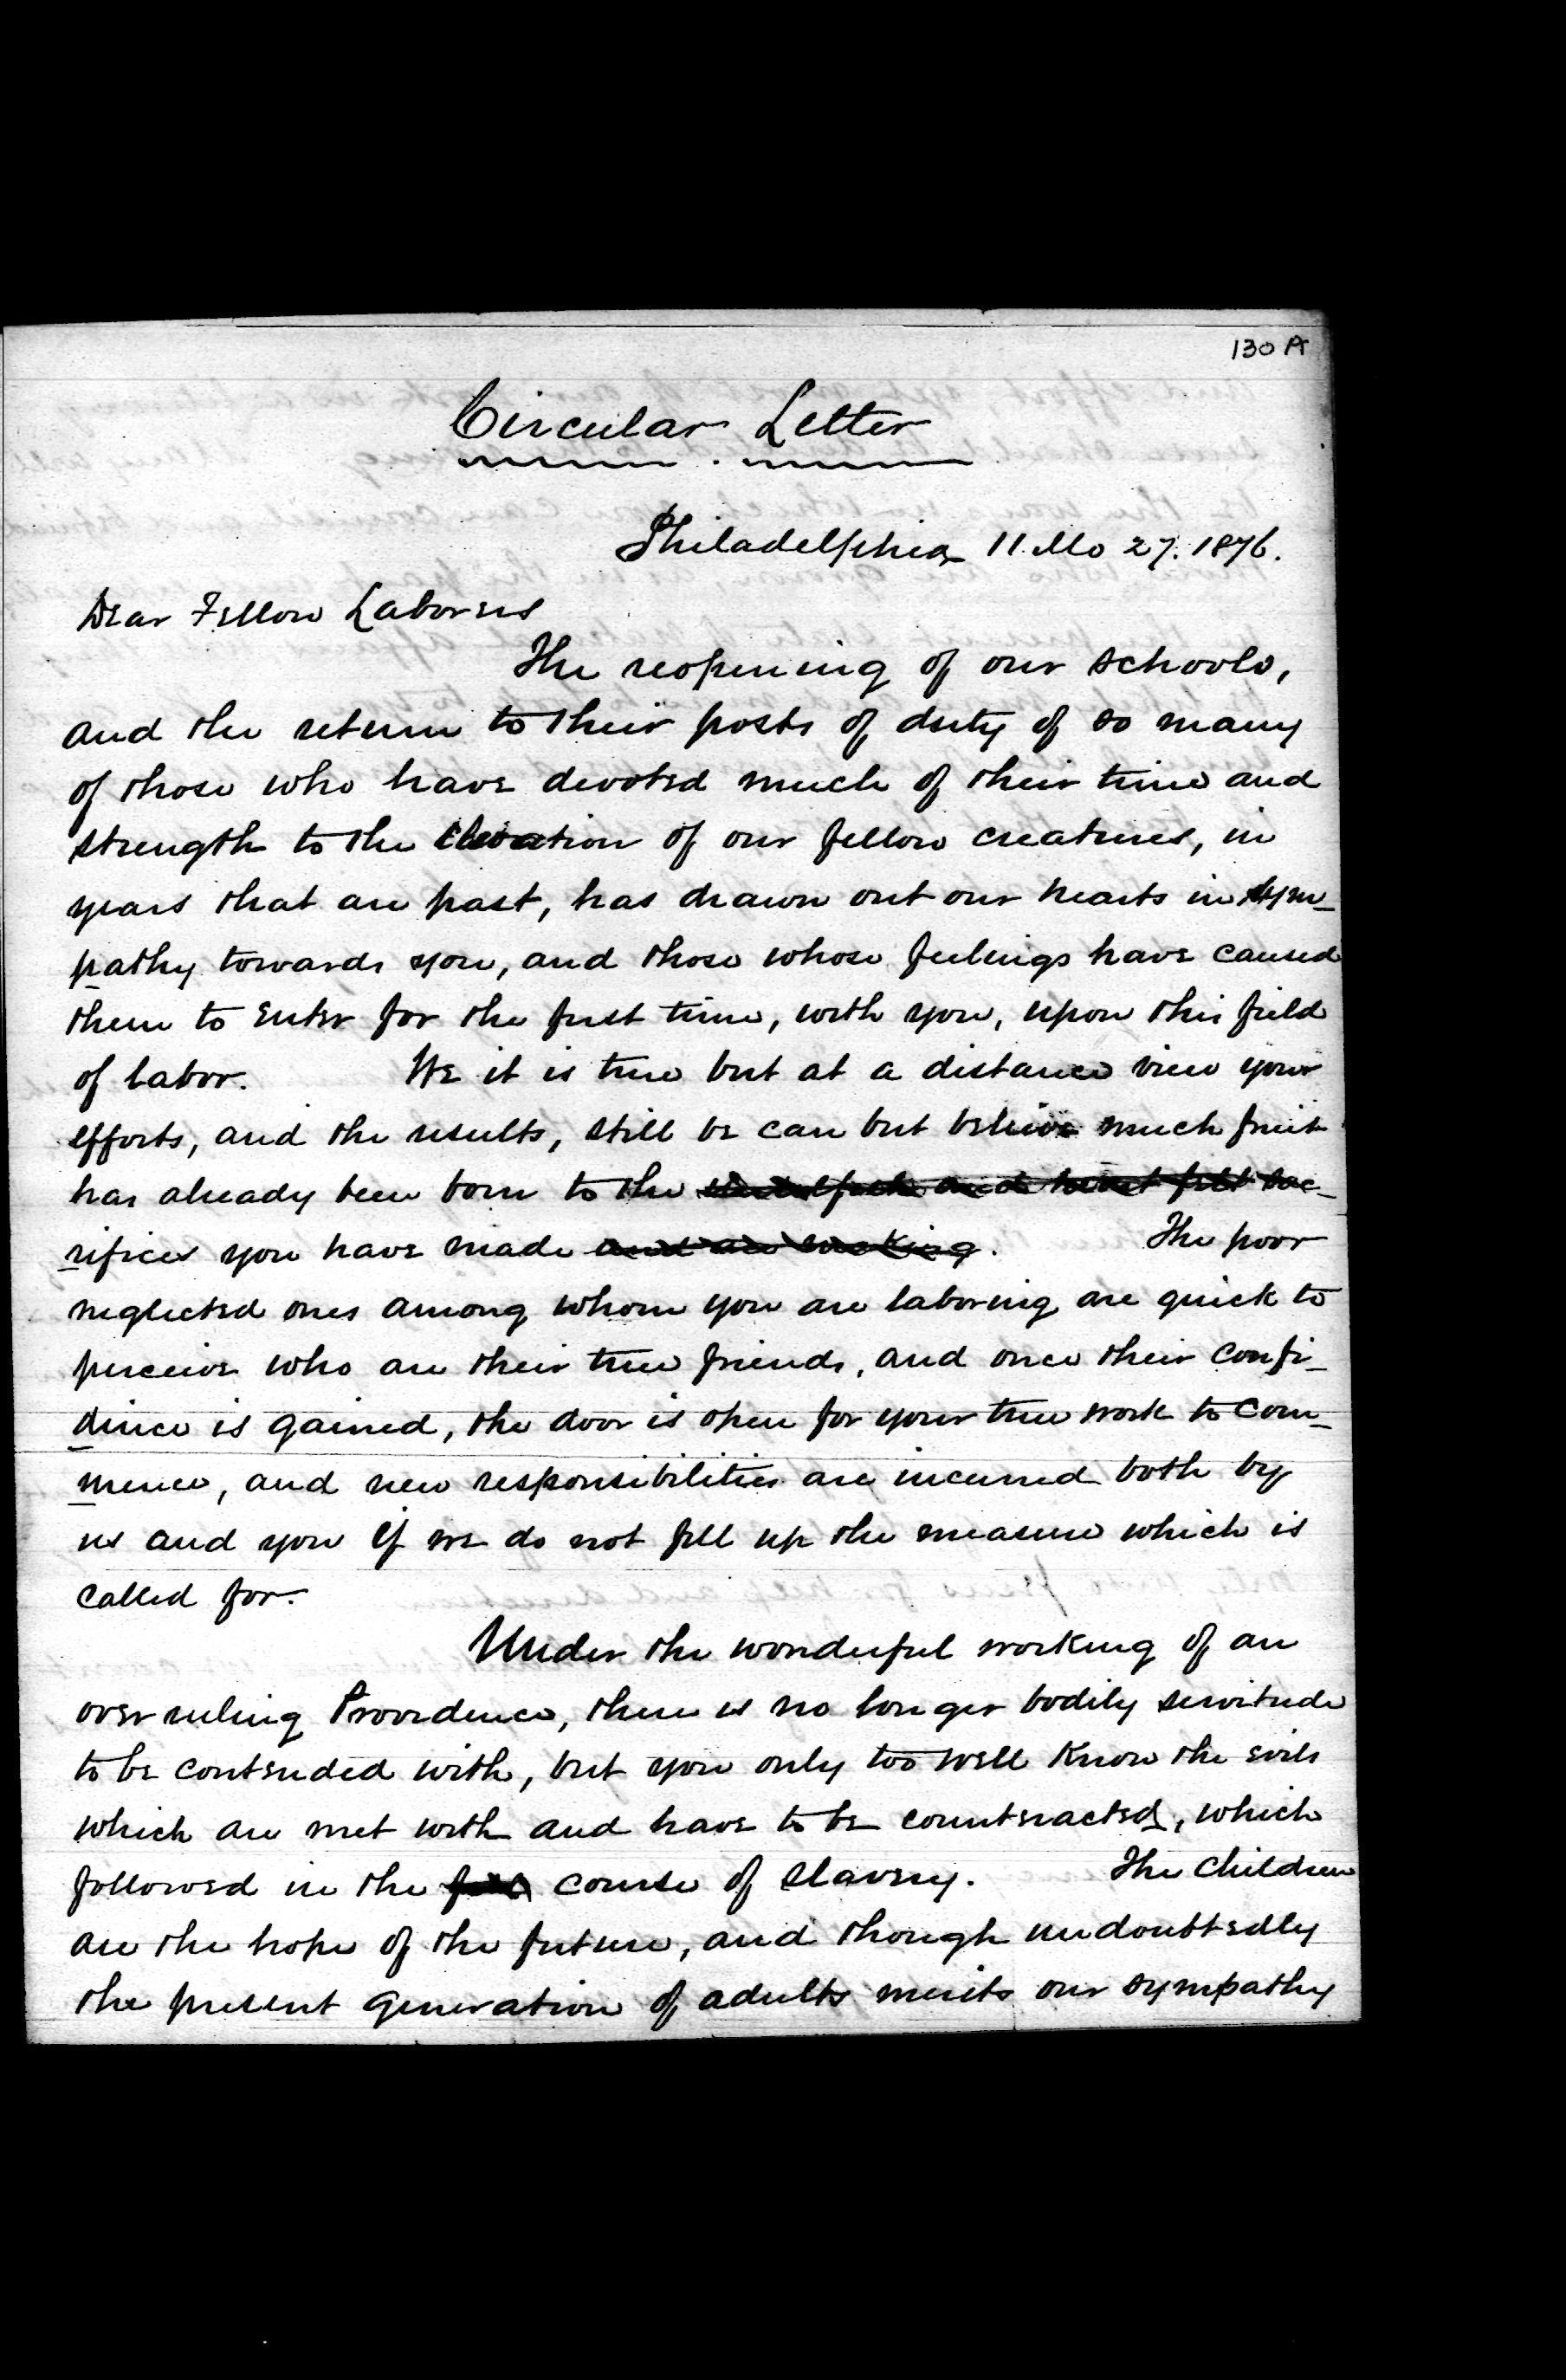 130 A
Circular Letter
Philadelphia 11 Mo 27. 1876.
Dear Fellow Laborers
The reopening of our schools,
and the return to their posts of duty of so many
of those who have devoted much of their time and
strength to the elevation of our fellow creatures, in
years that are past, has drawn out our hearts in sym-
pathy towards you, and those whose feelings have caused
them to enter for the first time, with you, upon this field
of labor. We it is true but at a distance view your
efforts, and the results, still be can but believe much fruit
has already been born to the and heart felt sac-
rifices you have made and are making. The poor
neglected ones among whom you are laboring are quick to
perceive who are their true friends, and once their confi-
dence is gained, the door is open for your true work to com-
mence, and new responsibilities are incurred both by
us and you if we do not fill up the measure which is
called for.
Under the wonderful working of an
over ruling Providence, there is no longer bodily servitude
to be contended with, but you only too well know the evils
which are met with and have to be counteracted, which
followed in the course of slavery. The children
are the hope of the future, and though undoubtedly
the present generation of adults merits our sympathy